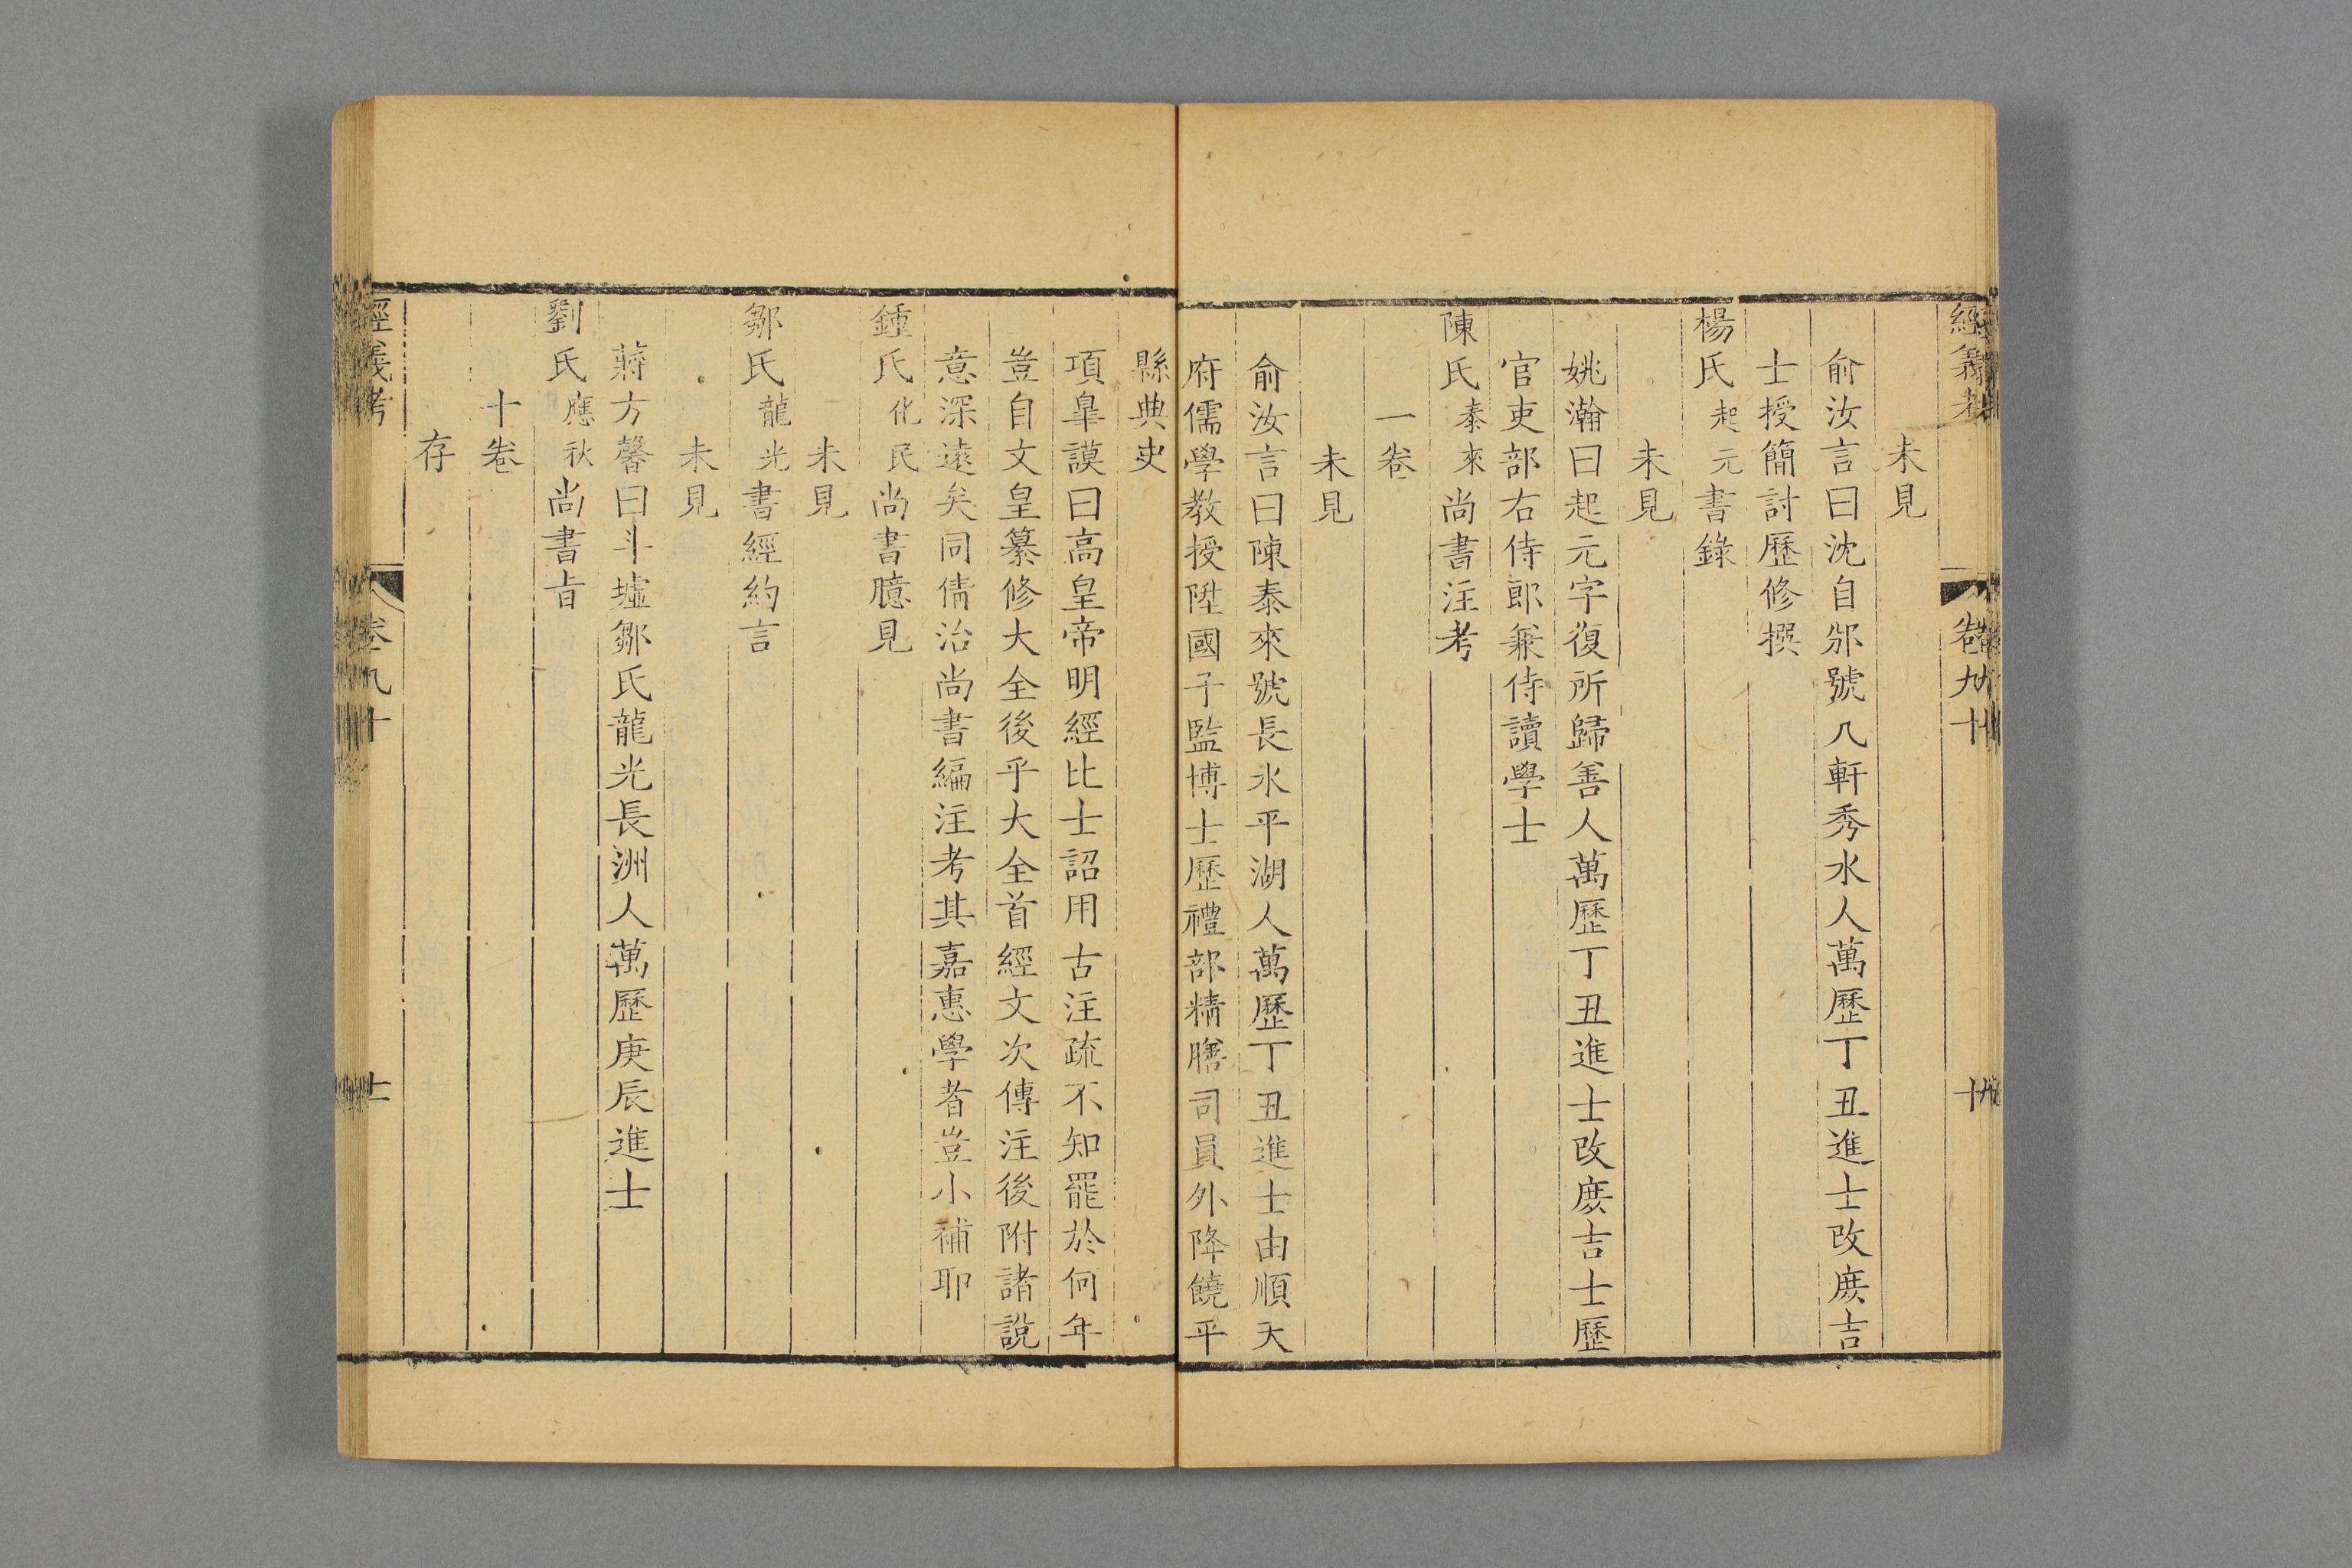 經義考 卷九十 十
未見
俞汝言曰沈自邠號几軒秀水人萬歷丁丑進士改庶吉
士授簡討歷修撰
楊氏起元書錄
未見
姚瀚曰起元字復所歸善人萬歷丁丑進士改庶吉士歷
官吏部右侍郎兼侍讀學士
陳氏泰來尚書注考
一卷
未見
俞汝言曰陳泰來號長水平湖人萬歷丁丑進士由順天
府儒學教授陞國子監博士歷禮部精膳司員外降饒平
縣典史
項臯謨曰高皇帝明經比士詔用古注疏不知罷於何年
豈自文皇纂修大全後乎大全首經文次傳注後附諸說
意深遠矣同倩治尚書編注考其嘉惠學者豈小補耶
鍾氏化民尚書臆見
未見
鄒氏龍光書經約言
未見
蔣方馨曰斗墟鄒氏龍光長洲人萬歷庚辰進士
劉氏應秋尚書旨
十卷
存
經義考 卷九十 十一